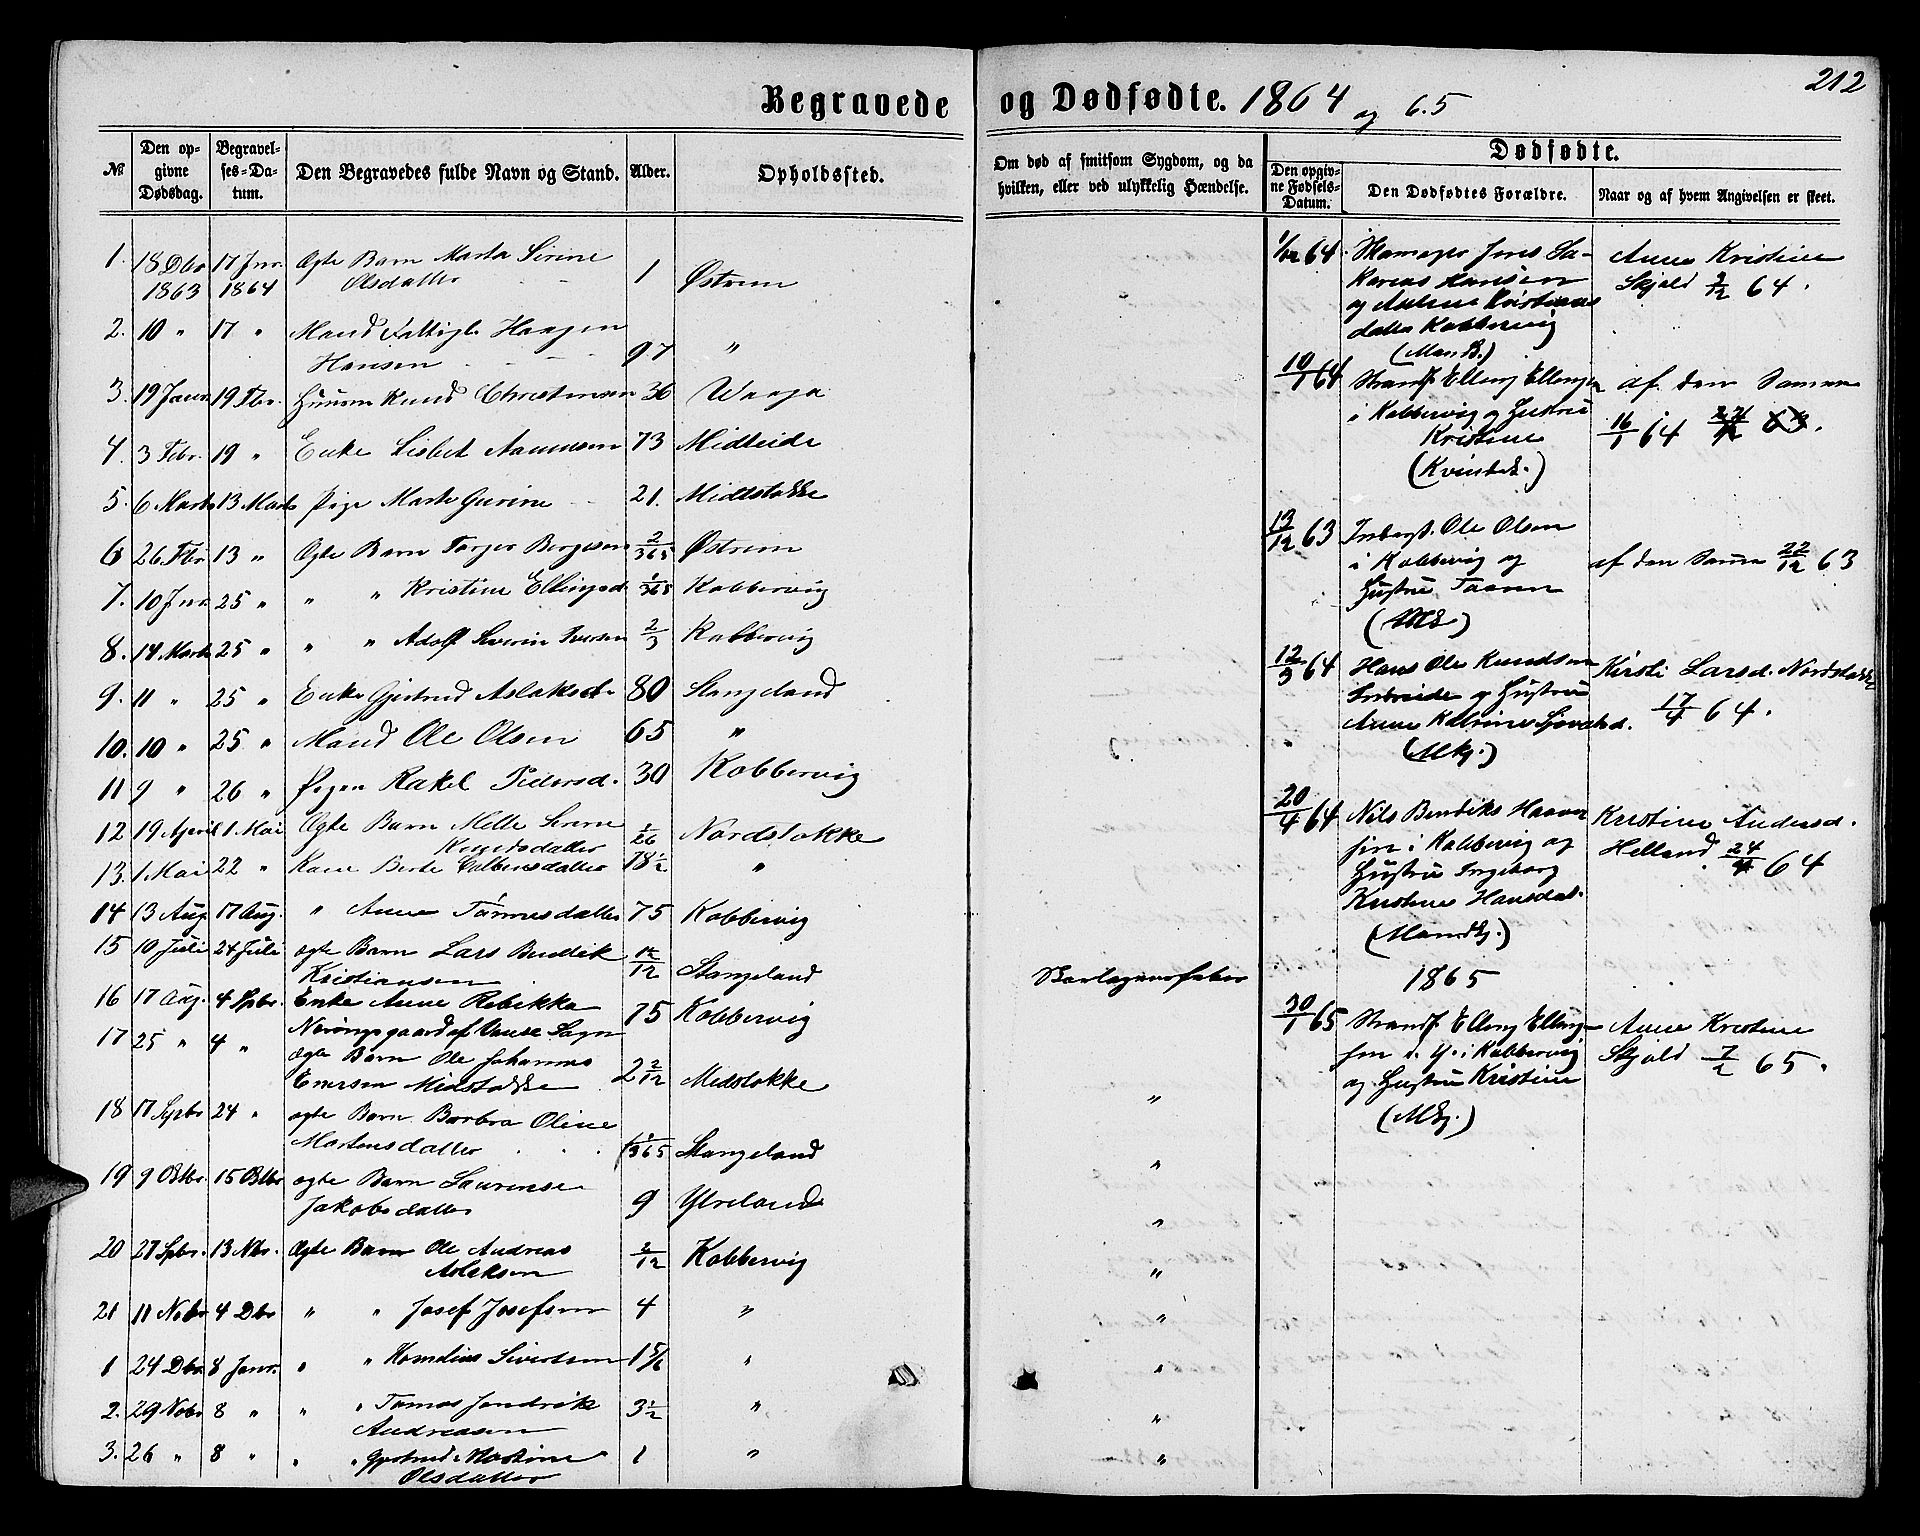 Begravede og Dødfødte. 1864 og 65
212
№
Den opgivne Dødsdag.
Begravelses-Datum.
Den Begravedes fulde Navn og Stand.
Alder.
Opholdssted.
Om død af smitsom Sygdom, og da hvilken, eller ved ulykkelig Hændelse.
Dødfødte.
Den opgivne Fødsels-Datum.
Den Dødfødtes Forældre.
Naar og af hvem Angivelsen er skeet.
1. 18 Dbr 1863 17 Jnr. 1864 Ægte Barn Marta Serine
Olsdatter 1 Østrem
2. 10 " 17 " Mand Haagen
Hansen 97 "
3. 19 Janr 19 Fbr. Huusm Knud Christensen 36 Waaga
4. 3 Febr. 19 " Enke Lisbet 73 Midteide
5. 6 Marts 13 Marts Pige Marte Gurine 21. Midtstokke
6 26 Fbr 13 " Ægte Barn Torger Borgesen 2/365 Østrem
7. 10 Jnr 25 " " " Kristine Ellingsd 1/365 Kobbervig
8. 14 Marts 25 " " " Adolf Severin Iversen 2/3 Kobbervig
9. 11 " 25 " Enke Gjertrud Aslaksdt 80 Stangeland
10. 10 " 25 " Mand Ole Olsen 65 "
11 9 " 26 " Pigen Rakel Pedersd. 30 Kobbervig
12 19 April 1 Mai Ægte Barn Mette Serene
Knudsdatter 1/26 Nordstokke
13. 1 Mai 22 " Kone Berte 78 1/2 "
14 13 Aug 17 Aug. " Anne Tönnesdatter 75 Kobbervig
15 10 Juli 24 Juli ægte Barn Lars Bendik
Kristiansen /12 Stangeland
16 17 Aug. 4 Spbr. Enke Anne Rebekka
75 Kobbervig
17 25 " 4 " Ægte Barn Ole Johannes
Enersen Midstokke 2 2/12 Midstokke "
18 17 Spbr 24 " ægte Barn Barbra Oline
Martensdatter 1/365 Stangeland "
19 9 Oktbr. 15 Oktbr ægte Barn Laurense
Jakobsdatter 9 Ytreland "
20 27 Spbr. 13 Nbr. Ægte Barn Ole Andreas
Asleksen 2/12 Kobbervig "
21 11 Novbr 4 Dbr " " Josef Josefsen 4 " "
1 24 Dbr 8 Janr. " " Kornelius Sivertsen 1 5/6 " "
2. 29 Nobr 8 " " " Tomas Hendrik
Andreasen 3 1/2 " "
3. 26 " 8 " " " Gjertrud Martine
Olsdatter 1 " "
1/12 64 Jens Sa-
karias Hansen
og Kristians
datter Kobbervig
(Mandk.)
Anne Kristine
Skjold 3/12 64.
10/1 64 Strands. Elling Ellings
i Kobbervig og Hustrue
Kristine
(Kvindek.)
af den Samme
16/1 64
13/12 63 Inderst. Ole Olsen
i Kobbervig og
Hustru
(Mk)
af den Samme 22/12 63
12/3 64 Hans Ole Knudsen
og Hustrue
Anne Katrine
(Mkj.)
Kirsti Larsd. Nordstokke
17/4 64.
20/4 64 Nils Bendiks
sen i Kobbervig og
Hustrue Ingeborg
Kristine Hansdat.
(Mandkj.)
Kristine Andersd.
Helland. 24/4 64
1865
30/1 65 Strands. Elling Elling-
sen d. Y. i Kobbervig
og Hustrue Kristine
(Mkj.)
Anne Kristine
Skjold 7/2 65.